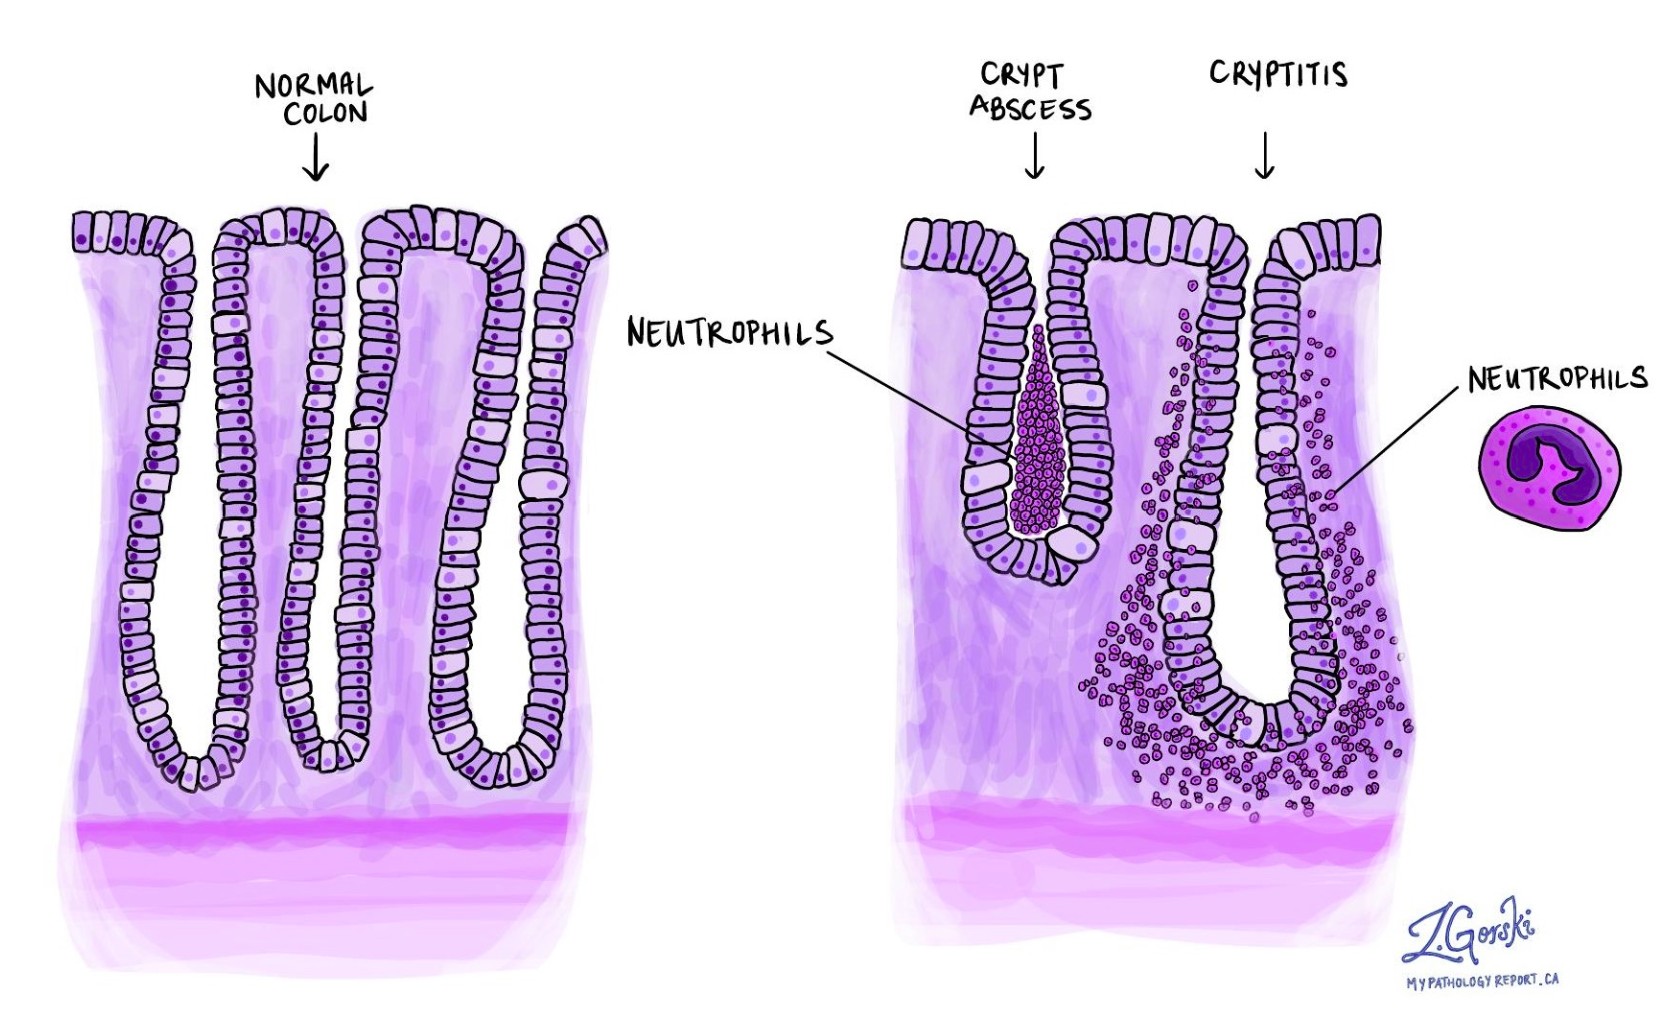 NORMAL
COLON
CRYPT
ABSCESS
CRYPTITIS
NEUTROPHILS
NEUTROPHILS
Z.Gorski
MYPATHOLOGYREPORT.CA